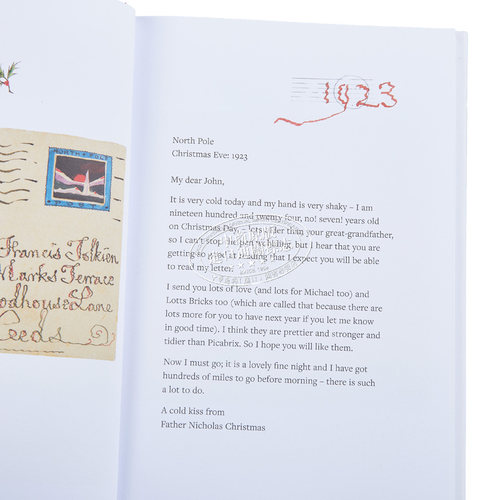 NORTH POLE
Francis Tolkien
Marks Terrace
odhouse Lane
eeds
1923
North Pole
Christmas Eve: 1923
My dear John,
It is very cold today and my hand is very shaky – I am
nineteen hundred and twenty four, no! seven! years old
on Christmas Day, – lots older than your great-grandfather,
so I can't stop the pen wobbling, but I hear that you are
getting so good at reading that I expect you will be able
to read my letter.
I send you lots of love (and lots for Michael too) and
Lotts Bricks too (which are called that because there are
lots more for you to have next year if you let me know
in good time). I think they are prettier and stronger and
tidier than Picabrix. So I hope you will like them.
Now I must go; it is a lovely fine night and I have got
hundreds of miles to go before morning – there is such
a lot to do.
A cold kiss from
Father Nicholas Christmas